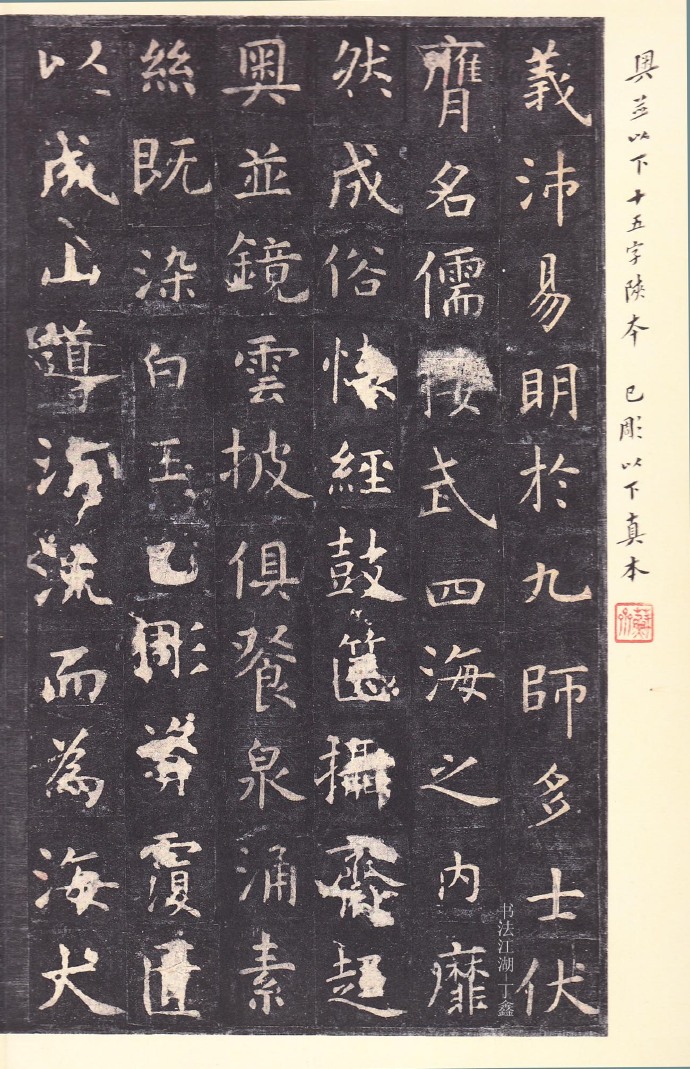 奧並以下十五字陝本 已彫以下真本
義沛易明於九師多士伏
膺名儒接武四海之內靡
然成俗懷經鼓篋攝齋趍
奧並鏡雲披俱餐泉涌素
絲既染白玉已彫資覆匱
以成山導涓流而為海犬
书法江湖 丁鑫